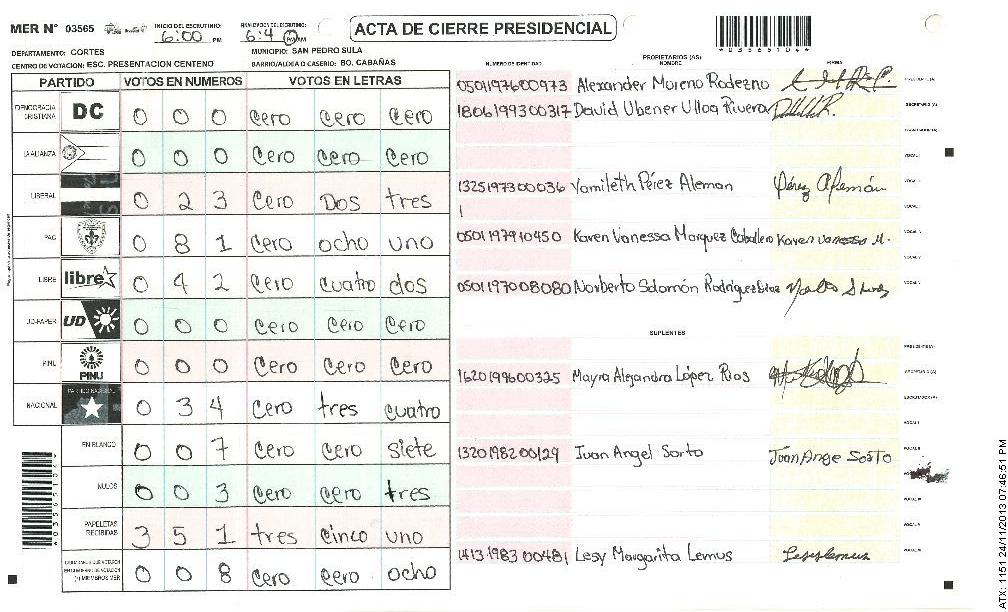 MER N° 03565
INICIO DEL ESCRUTINIO: 6:00 PM
FINALIZACION DEL ESCRUTINIO: 6:4 PM AM
ACTA DE CIERRE PRESIDENCIAL
DEPARTAMENTO: CORTES
MUNICIPIO: SAN PEDRO SULA
CENTRO DE VOTACION: ESC. PRESENTACION CENTENO
BARRIO/ALDEA O CASERIO: BO. CABAÑAS
PARTIDO VOTOS EN NUMEROS VOTOS EN LETRAS
DEMOCRACIA CRISTIANA DC 0 0 0 Cero Cero Cero
LA ALIANZA 0 0 0 Cero Cero Cero
LIBERAL 0 2 3 Cero Dos tres
PAC 0 8 1 Cero ocho uno
LIBRE libre 0 4 2 Cero cuatro dos
UD-FAPER UD 0 0 0 Cero Cero Cero
PINU PINU 0 0 0 Cero Cero Cero
NACIONAL PARTIDO NACIONAL 0 3 4 Cero tres cuatro
EN BLANCO 0 0 7 Cero Cero siete
NULOS 0 0 3 Cero Cero tres
PAPELETAS RECIBIDAS 3 5 1 tres cinco uno
(+) MIEMBROS MER 0 0 8 Cero Cero ocho
NUMERO DE IDENTIDAD PROPIETARIOS (AS) NOMBRE FIRMA
0501197600973 Alexander Moreno Rodezno PRESIDENTE (A)
1806199300317 David Ubener Ulloa Rivera SECRETARIO (A)
ESCRUTADOR (A)
VOCAL I
1325197300036 Yamileth Pérez Aleman Pérez Alemán VOCAL II
1 VOCAL III
0501197910450 Karen Vanessa Marquez Caballero Karen Vanessa M. VOCAL IV
VOCAL V
0501197008080 Norberto Salomón Rodriguez
SUPLENTES
PRESIDENTE (A)
1620199600325 Mayra Alejandra López Rios SECRETARIO (A)
ESCRUTADOR (A)
VOCAL I
1320198200129 Juan Angel Sorto Juan Ange Sosto VOCAL II
VOCAL IV
VOCAL V
1413198300481 Lesy Margarita Lemus Lesylemus
ATX: 1151 24/11/2013 07:46:51 PM